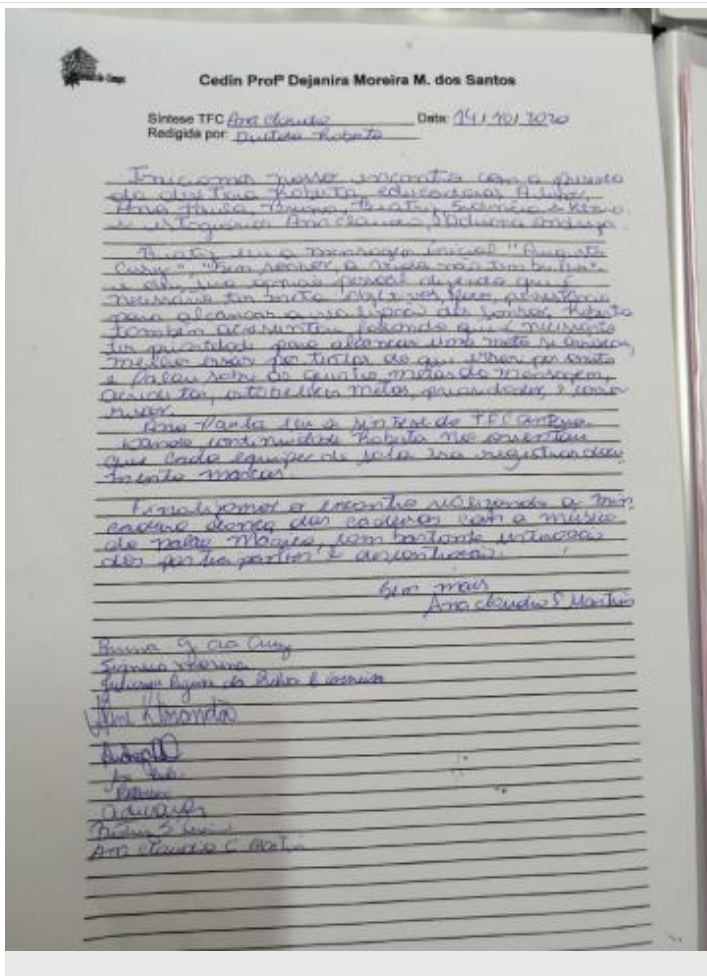 Cedin Profª Dejanira Moreira M. dos Santos
Síntese TFC Ana Claudia Data: 14/10/2020
Redigida por: Diretora Roberta
Iniciamos nosso encontro com a presença
da diretora Roberta, educadoras Aline,
Ana Paula, Bruna, Beatriz, Sidnéia
e estagiarias Ana Claudia, Adriana
Beatriz leu a mensagem inicial "Augusto
Cury", "Sem sonhos, a vida não tem brilho".
e deu sua opinião pessoal dizendo que é
necessário ter meta objetivos, foco, persistência
para alcançar a realização do sonhos. Roberta
também acrescentou falando que é necessário
ter prioridade para alcançar uma meta se arriscar,
melhor errar por tentar do que errar por omitir
e falou sobre as quatro metas da mensagem,
acreditar, estabelecer metas, prioridades, e correr
riscos.
Ana Paula leu a síntese do TFC anterior.
Dando continuidade Roberta nos orientou
que cada equipe de sala ira registrar
Finalizamos o encontro realizando a brin
cadeira dança das cadeiras com a música
do com bastante interação
dos participantes e descontração.
Sem mais
Ana claudia S Martins
Bruna G da Cruz
Juliana da Silva
Ana claudia Martins